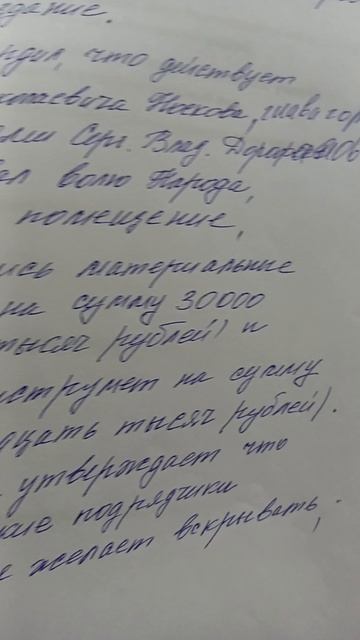 здание.
что действует
Носкова, глава гор
Серг. Влад. Дорофеев
волю Народа,
помещение,
ись материальные
на сумму 30000
тысяч рублей) и
струмент на сумму
дцать тысяч рублей).
утверждает что
кие подрядчики
е желает вскрывать.